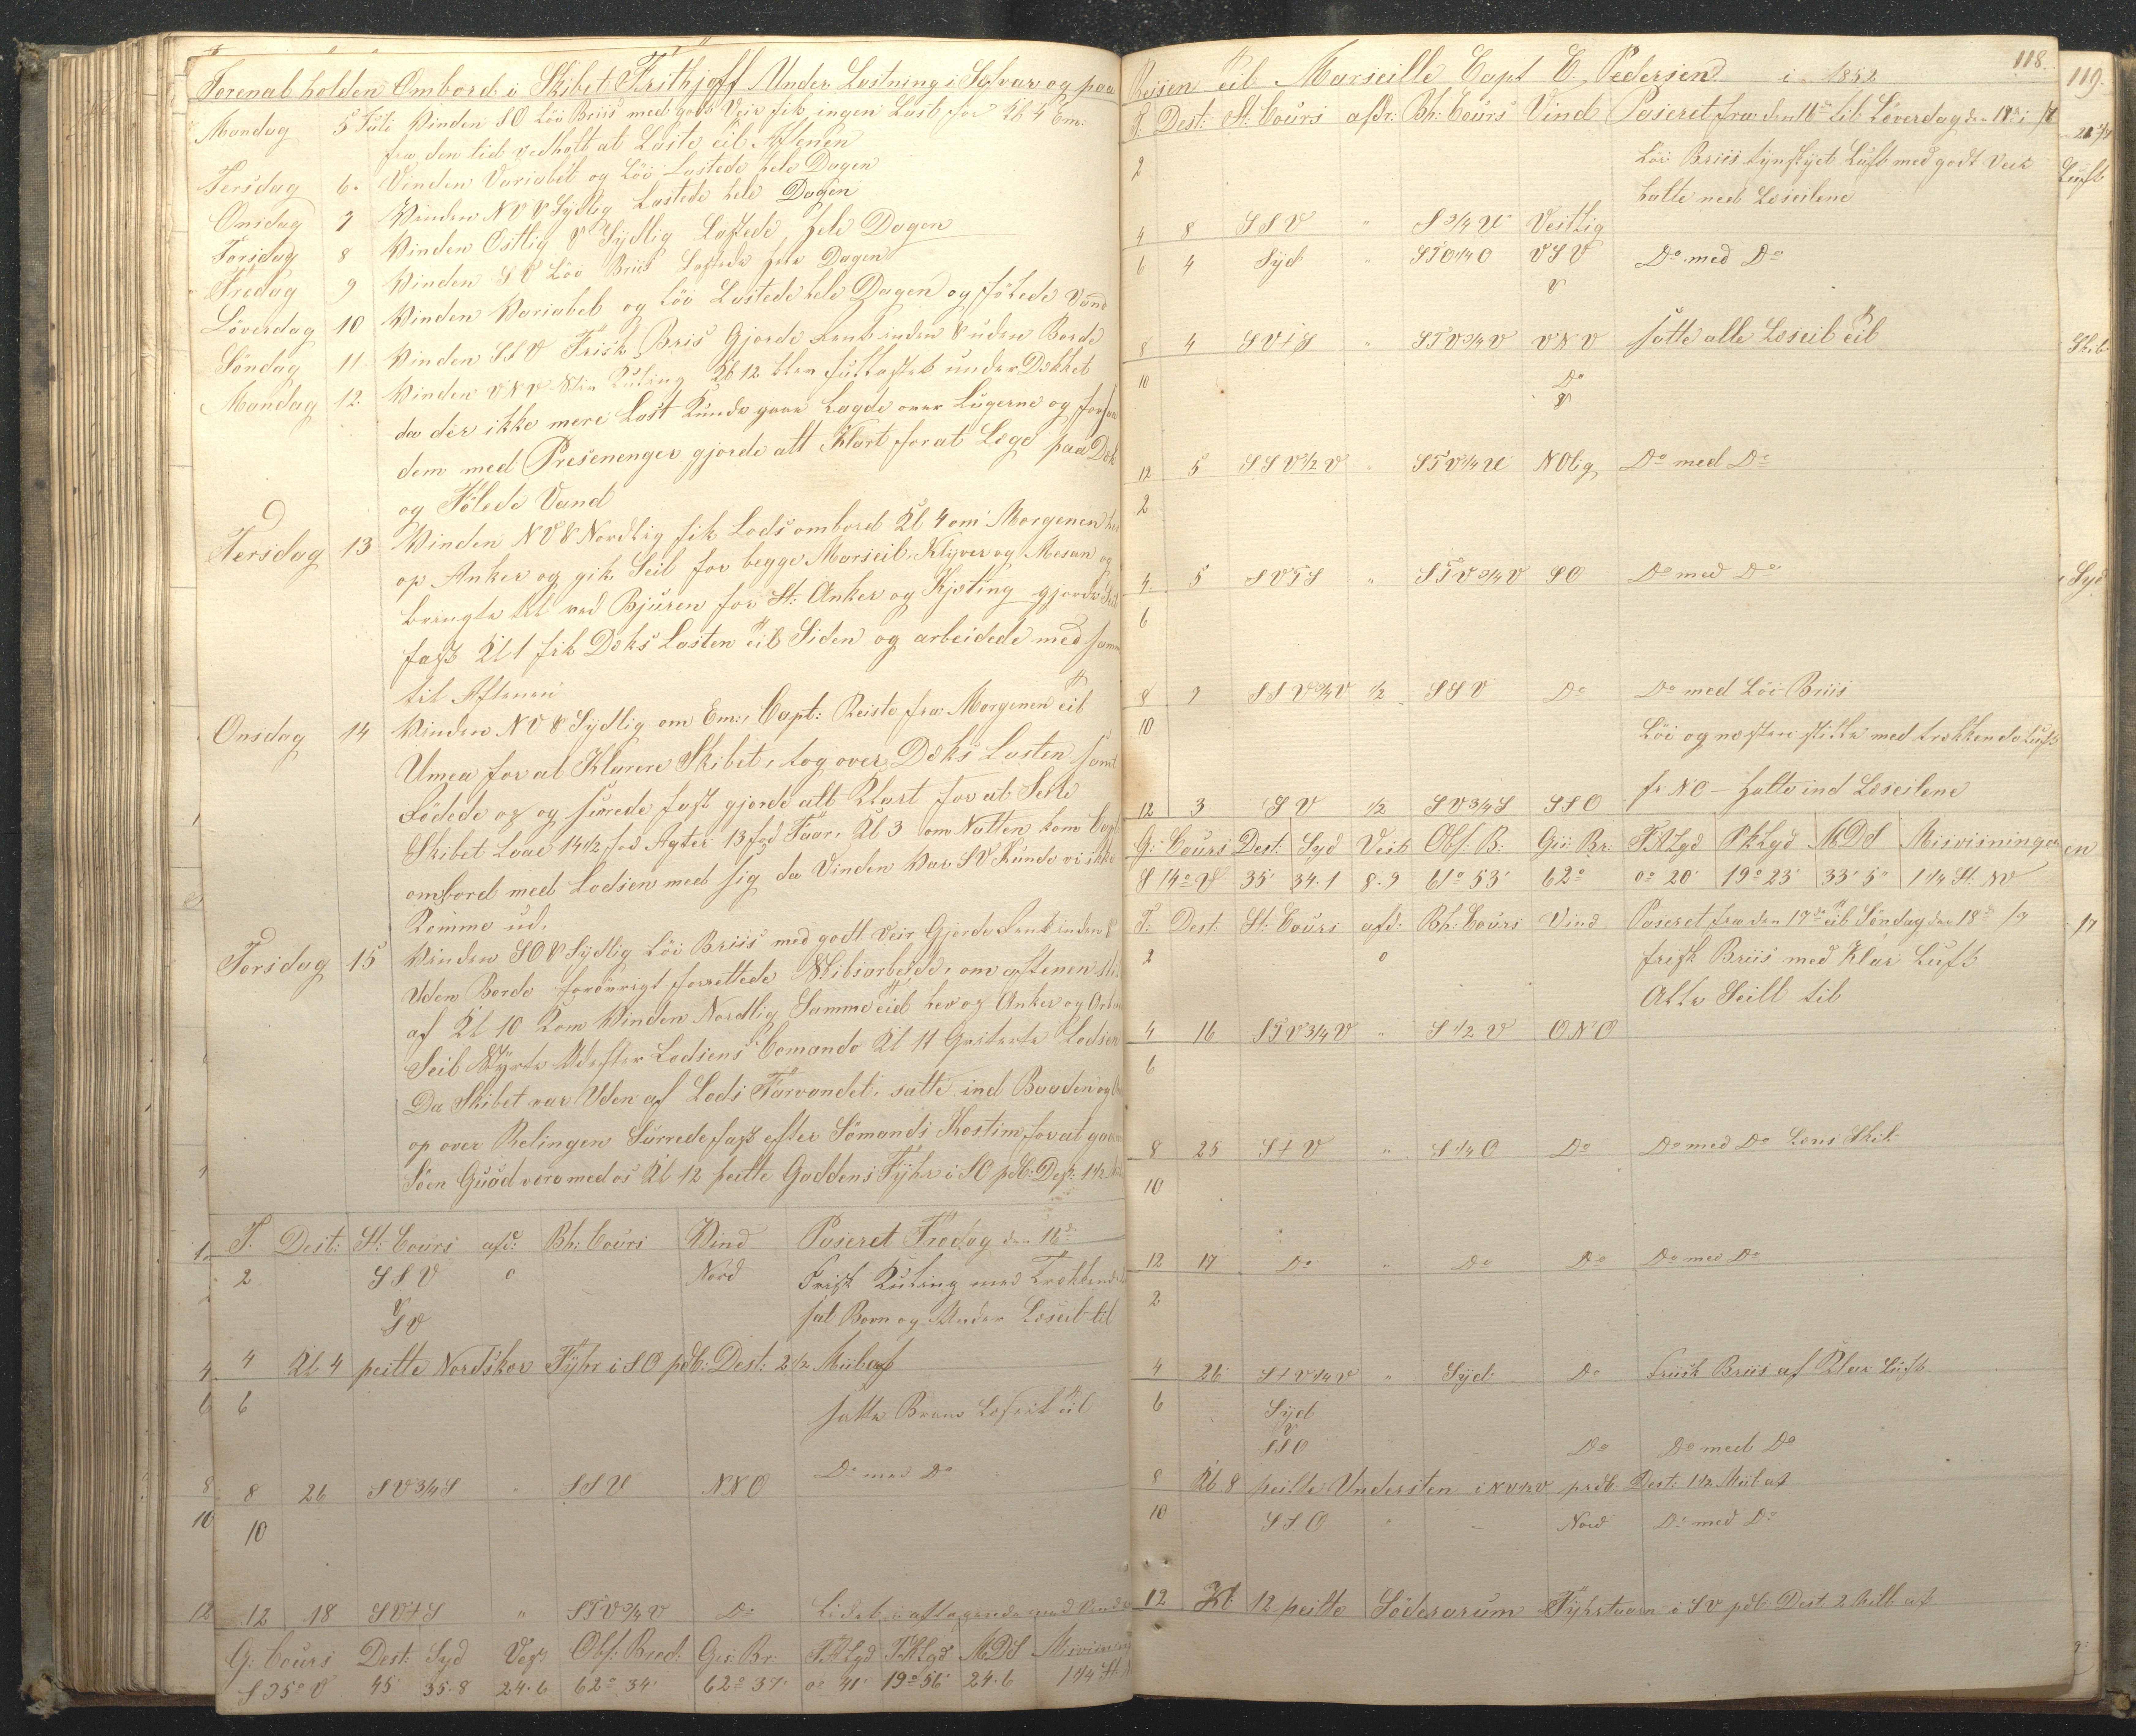 Jorenal holden Ombord i Skibet Frithjoff Under Lastning i Selvar og paa
Mandag 5 Juli Vinden SO Löi Briis med godt Veir fik ingen Last för Kl 4 Em:
fra den tid vedholt at Laste til Aftenen
Tersdag 6. Vinden Variabel og Löi Lastede hele Dagen
Onsdag 7 Vinden NV & Sydlig Lastede hele Dagen
Torsdag 8 Vinden Ostlig & Sydlig Lastede hele Dagen
Fredag 9 Vinden SV Löi Briis Lastede hele Dagen
Löverdag 10 Vinden Variabel og Löi Lastede hele Dagen og fölede Vand
Söndag 11 Vinden SSV Frisk Bris Gjorde Rent inden & uden Borde
Mandag 12. Vinden VNV Kuling Kl 12 blev under Dækket
da der ikke mere Last Kunde gaae Lagde over Lugerne og
dem med Presenenger gjorde alt Klart for at Lege paa Dæk
og Fölede Vand
Tersdag 13 Vinden NV & Nordlig fik Lods ombord Kl 4 om Morgenen
op Anker og gik Seil for begge Marseil, Klyver og Mesan og
bragte det ved Bjuren for St: Anker og Kjæting gjorde Seil
fast Kl 1 fik Dæks Lasten til Siden og arbeidede med samme
til Aftenen
Onsdag 14 Vinden NV & Sydlig om Em:, Capt: Reiste fra Morgenen til
Umea for at Klarere Skibet, tog over Dæks Lasten samt
Södede og og surede fast gjorde alt Klart for at Seile
Skibet Laae 14½ fod Agter 13 fod Faar, Kl 3 om Natten kom Capt
ombord med Lodsen med sig da Vinden var SV Kunde vi ikke
Komme ud.
Torsdag 15 Vinden SO & Sydlig Löi Briis med godt Veir Gjorde Rent inden &
Uden Borde forövrigt forrettede Skibsarbeide, om aftenen
af Kl 10 Kom Vinden Nordlig Samme tid hev og Anker og
Seil Styrte Udefter Lodsens Comando Kl 11 Qviterte Lodsen
Da Skibet var Uden af Lods Farvandet, satte ind Baaden og
op over Relingen Surrede fast efter Sömands Kostim for at gaa
Söen Guud vere med os Kl 12 peilte Gaddens Fyhr i SO pdb: Dest: 1½
T. Dest: St: Cours afd: Bh: Cours Vind Paseret Fredag den 16de
2 SSV 0 Nord Frisk Kuling med Trækkende
& SV sat Bovn og Under Leseil til
4 Kl 4 peilte Nordskor Fyhr i SO pdb: Dest: 2½ Miil af
6 satte Bram Leseil til
8 26 SV3/4S " SSV NNO Do med Do
10
12 18 SVtS " STV3/4V Do Lidet aftagende med Vinden
G: Cours Dest: Syd Vest Obs: Bred: Gis: Br: FALgd PKLgd MDS Misviisning
S35°V 45' 35.8 24.6 62° 34' 62° 37' 0° 41' 19° 56' 24.6 1 1/4 St N
Reisen til Marseille Capt E. Pedersen i 1852 118.
T. Dest: St: Cours afdr: Bh: Cours Vind Paseret fra den 16de til Löverdag den 17de i /7
2 Löi Briis tynskyet Luft med godt Veir
halte ned Leseilene
4 8 SSV " S3/4V Vestlig
6 4 Syd " STO1/4O VSV Do med Do
&
8 4 SVtS " STV3/4V VNV satte alle Leseil til
10 Do
&
12 5 SSV1/2V " STV1/4V NOlig Do med Do
2
4 5 SVTS " STV3/4V SO Do med Do
6
8 7 SSV3/4V ½ SSV Do Do med Löi Briis
10 Löi og næsten stille med trækkende Luft
fr NO – halte ind Leseilene
12 3 SV ½ SV3/4S SSO
G: Cours Dest: Syd Vest Obs: B: Gis: Br: FALgd PKLgd MDS Misviisningen
S 14° V 35' 34.1 8.9 61° 53' 62° 0° 20' 19° 23' 33' 5" 1 1/4 St. NV
T. Dest. St: Cours afd: Bh: Cours Vind Paseret fra den 17de til Söndag den 18de /7
2 0 frisk Briis med Klar Luft
Alle Seill til
4 16 STV3/4V " S1/2V ONO
6
8 25 StV " S1/4O Do Do med Do Lens Skib
10
12 17 Do " Do Do Do med Do
2
4 26 StV1/4V " Syd Do Friisk Briis af Klar Luft
6 Syd
&
SSO Do Do med Do
8 Kl 8 peilte Understen i NV½V prdb. Dest: 1½ Miil af
10 SSO " Nord Do med Do
12 Kl. 12 peilte Söderarum Fyhrtaarn i SV pdb. Dest 2 Miil af
119.
Luft
Syd
17